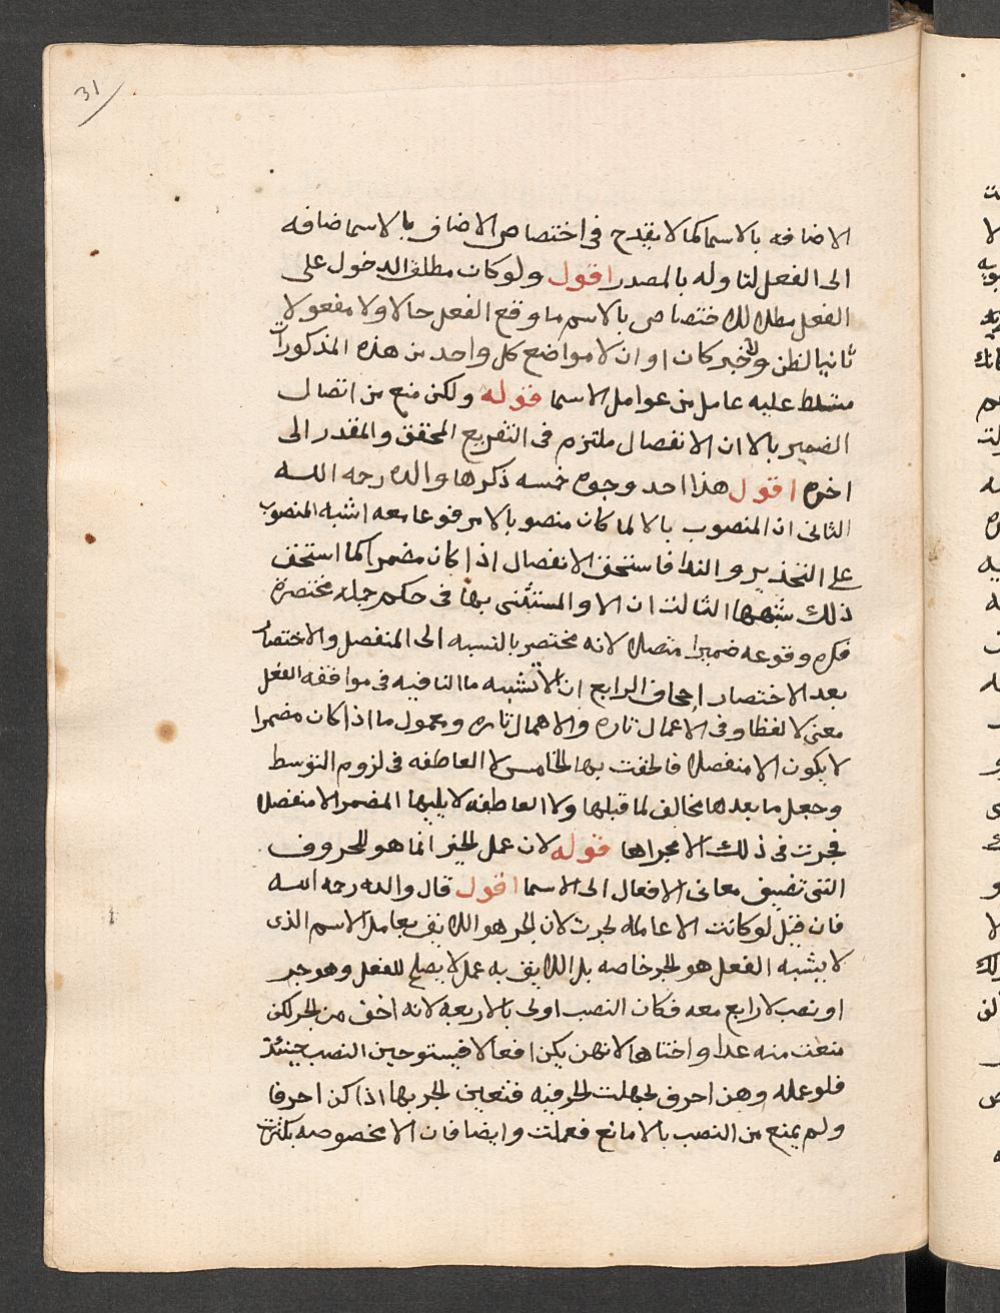 31
الاضافه بالاسما كما لا يقدح في اختصاص الاضاف بالاسما ضافه
الى الفعل لتاوله بالمصدر اقول ولو كان مطلق الدخول على
الفعل مبطلا للاختصاص بالاسم ما وقع الفعل حالا ولا مفعولا
ثانيا لظن ولا خبر كان او ان لا مواضع كل واحد من هذه المذكورات
متسلط عليه عامل من عوامل الاسما قوله ولكن منع من اتصال
الضمير بالا ان الانفصال ملتزم في التفريع المحقق والمقدر الى
اخره اقول هذا احد وجوه خمسه ذكرها والده رحه الله
الثاني ان المنصوب بالا لما كان منصوبا لا مرفوعا معه اشبه المنصوب
على التحذير والندا فاستحق الانفصال اذا كان مضمرا كما استحق
ذلك شبهها الثالث ان الا والمستثنى بها في حكم جمله مختصره
فكره وقوعه ضميرا متصلا لانه مختصر بالنسبه الى المنفصل والاختصار
بعد الاختصار اجحاف الرابع ان الا تشبه ما النافيه في موافقه الفعل
معنى لا لفظا وفي الاعمال تاره والاهمال تاره ومعمول ما اذا كان مضمرا
لا يكون الا منفصلا فالحقت بها الخامس لا العاطفه في لزوم التوسط
وجعل ما بعدها مخالف لما قبلها ولا العاطفه لا يليها المضمر الا منفصلا
فجرت في ذلك الا مجراها قوله لان عمل الجر انما هو للحروف
التي تضيف معاني الافعال الى الاسما اقول قال والده رحه الله
فان قيل لو كانت الا عامله لجرت لان الجر هو اللايق بعامل الاسم الذي
لا يشبه الفعل هو الجر خاصه بل اللايق به عمل لا يصلح للفعل وهو جر
او نصب لا رابع معه فكان النصب اولى بالا ربعه لانه اخف من الجر لكن
منعت منه عدا واختاها لانهن يكن افعالا فيستوحين النصب حينئذ
فلو عمله وهن احرف لجهلت الحرفيه فتعين الجر بها اذا كن احرفا
ولم يمنع من النصب بالا مانع فعملت وايضا فان الا مخصوصه بكثرت